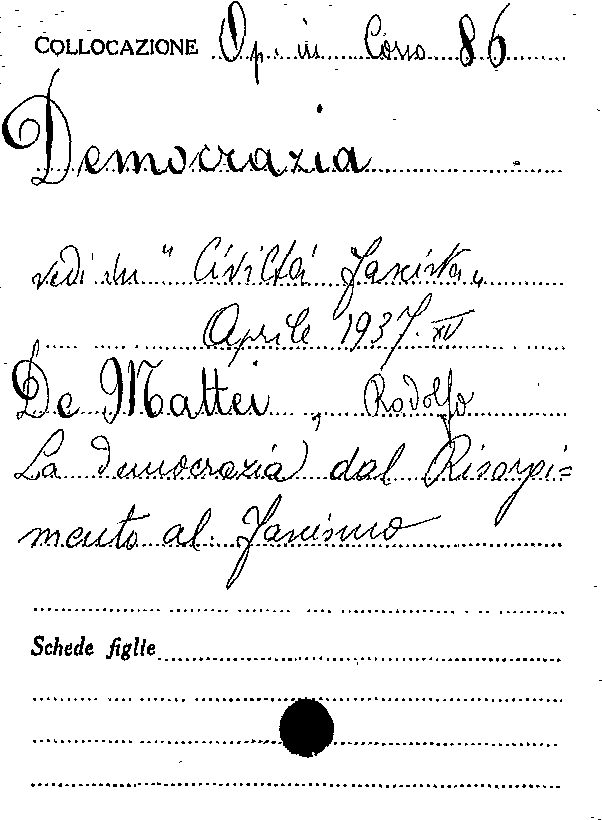 COLLOCAZIONE Op. in Corso 86
Democrazia
vedi in "Civiltà fascista"
Aprile 1937. XV
De Mattei, Rodolfo
La democrazia dal Risorgi=
mento al Fascismo
Schede figlie